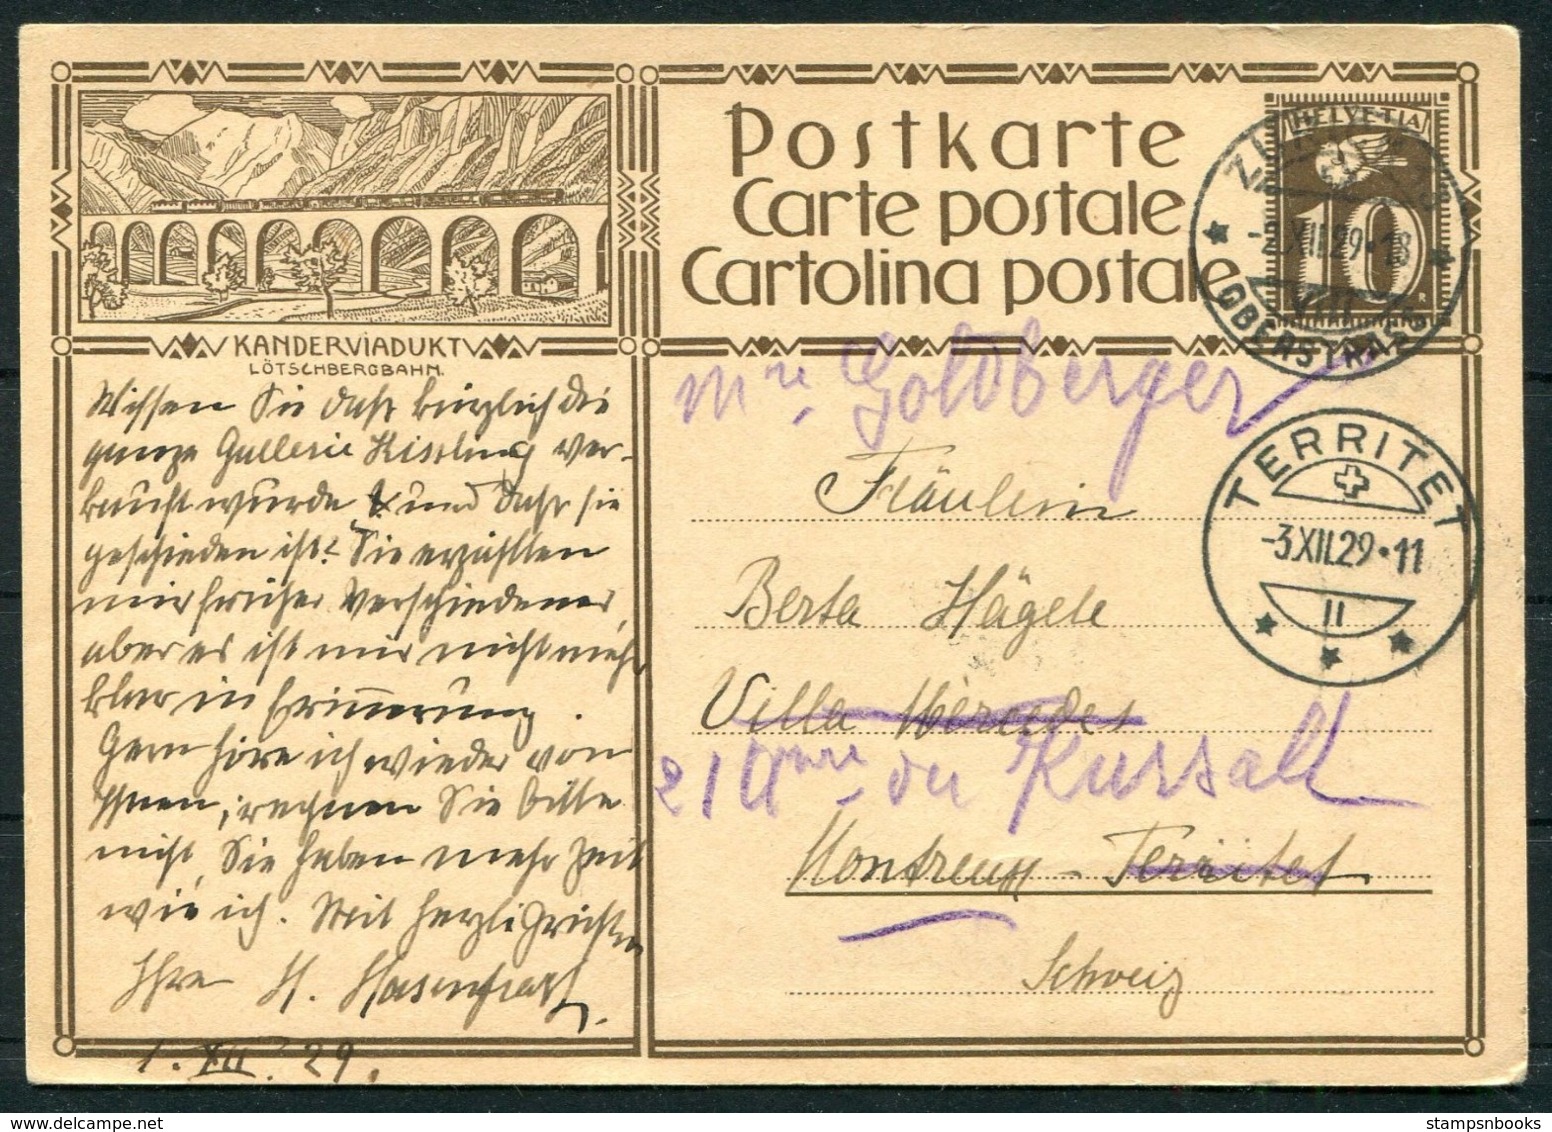 Postkarte
Carte postale
Cartolina postale
HELVETIA
10
-2.XII.29.-18
VIII
OBERSTRASS
KANDERVIADUKT
LÖTSCHBERGBAHN.
Wissen Sie daß kürzlich die
ganze Gallerie Kissling ver-
kauft wurde & und daß sie
geschieden ist? Sie erzählten
mir früher Verschiedenes,
aber es ist mir nicht mehr
klar in Erinnerung.
Gern höre ich wieder von
Ihnen, rechnen Sie bitte
nicht, Sie haben mehr Zeit
wie ich. Mit herzl. Grüßen
Ihre H. Hasenfratz.
1. XII. 29.
Mme Goldberger
Fräulein
Berta Hägele
Villa Mercedes
21 du Kursall
Montreux - Territet
Schweiz
TERRITET
-3.XII.29.-11
II
stampsnbooks